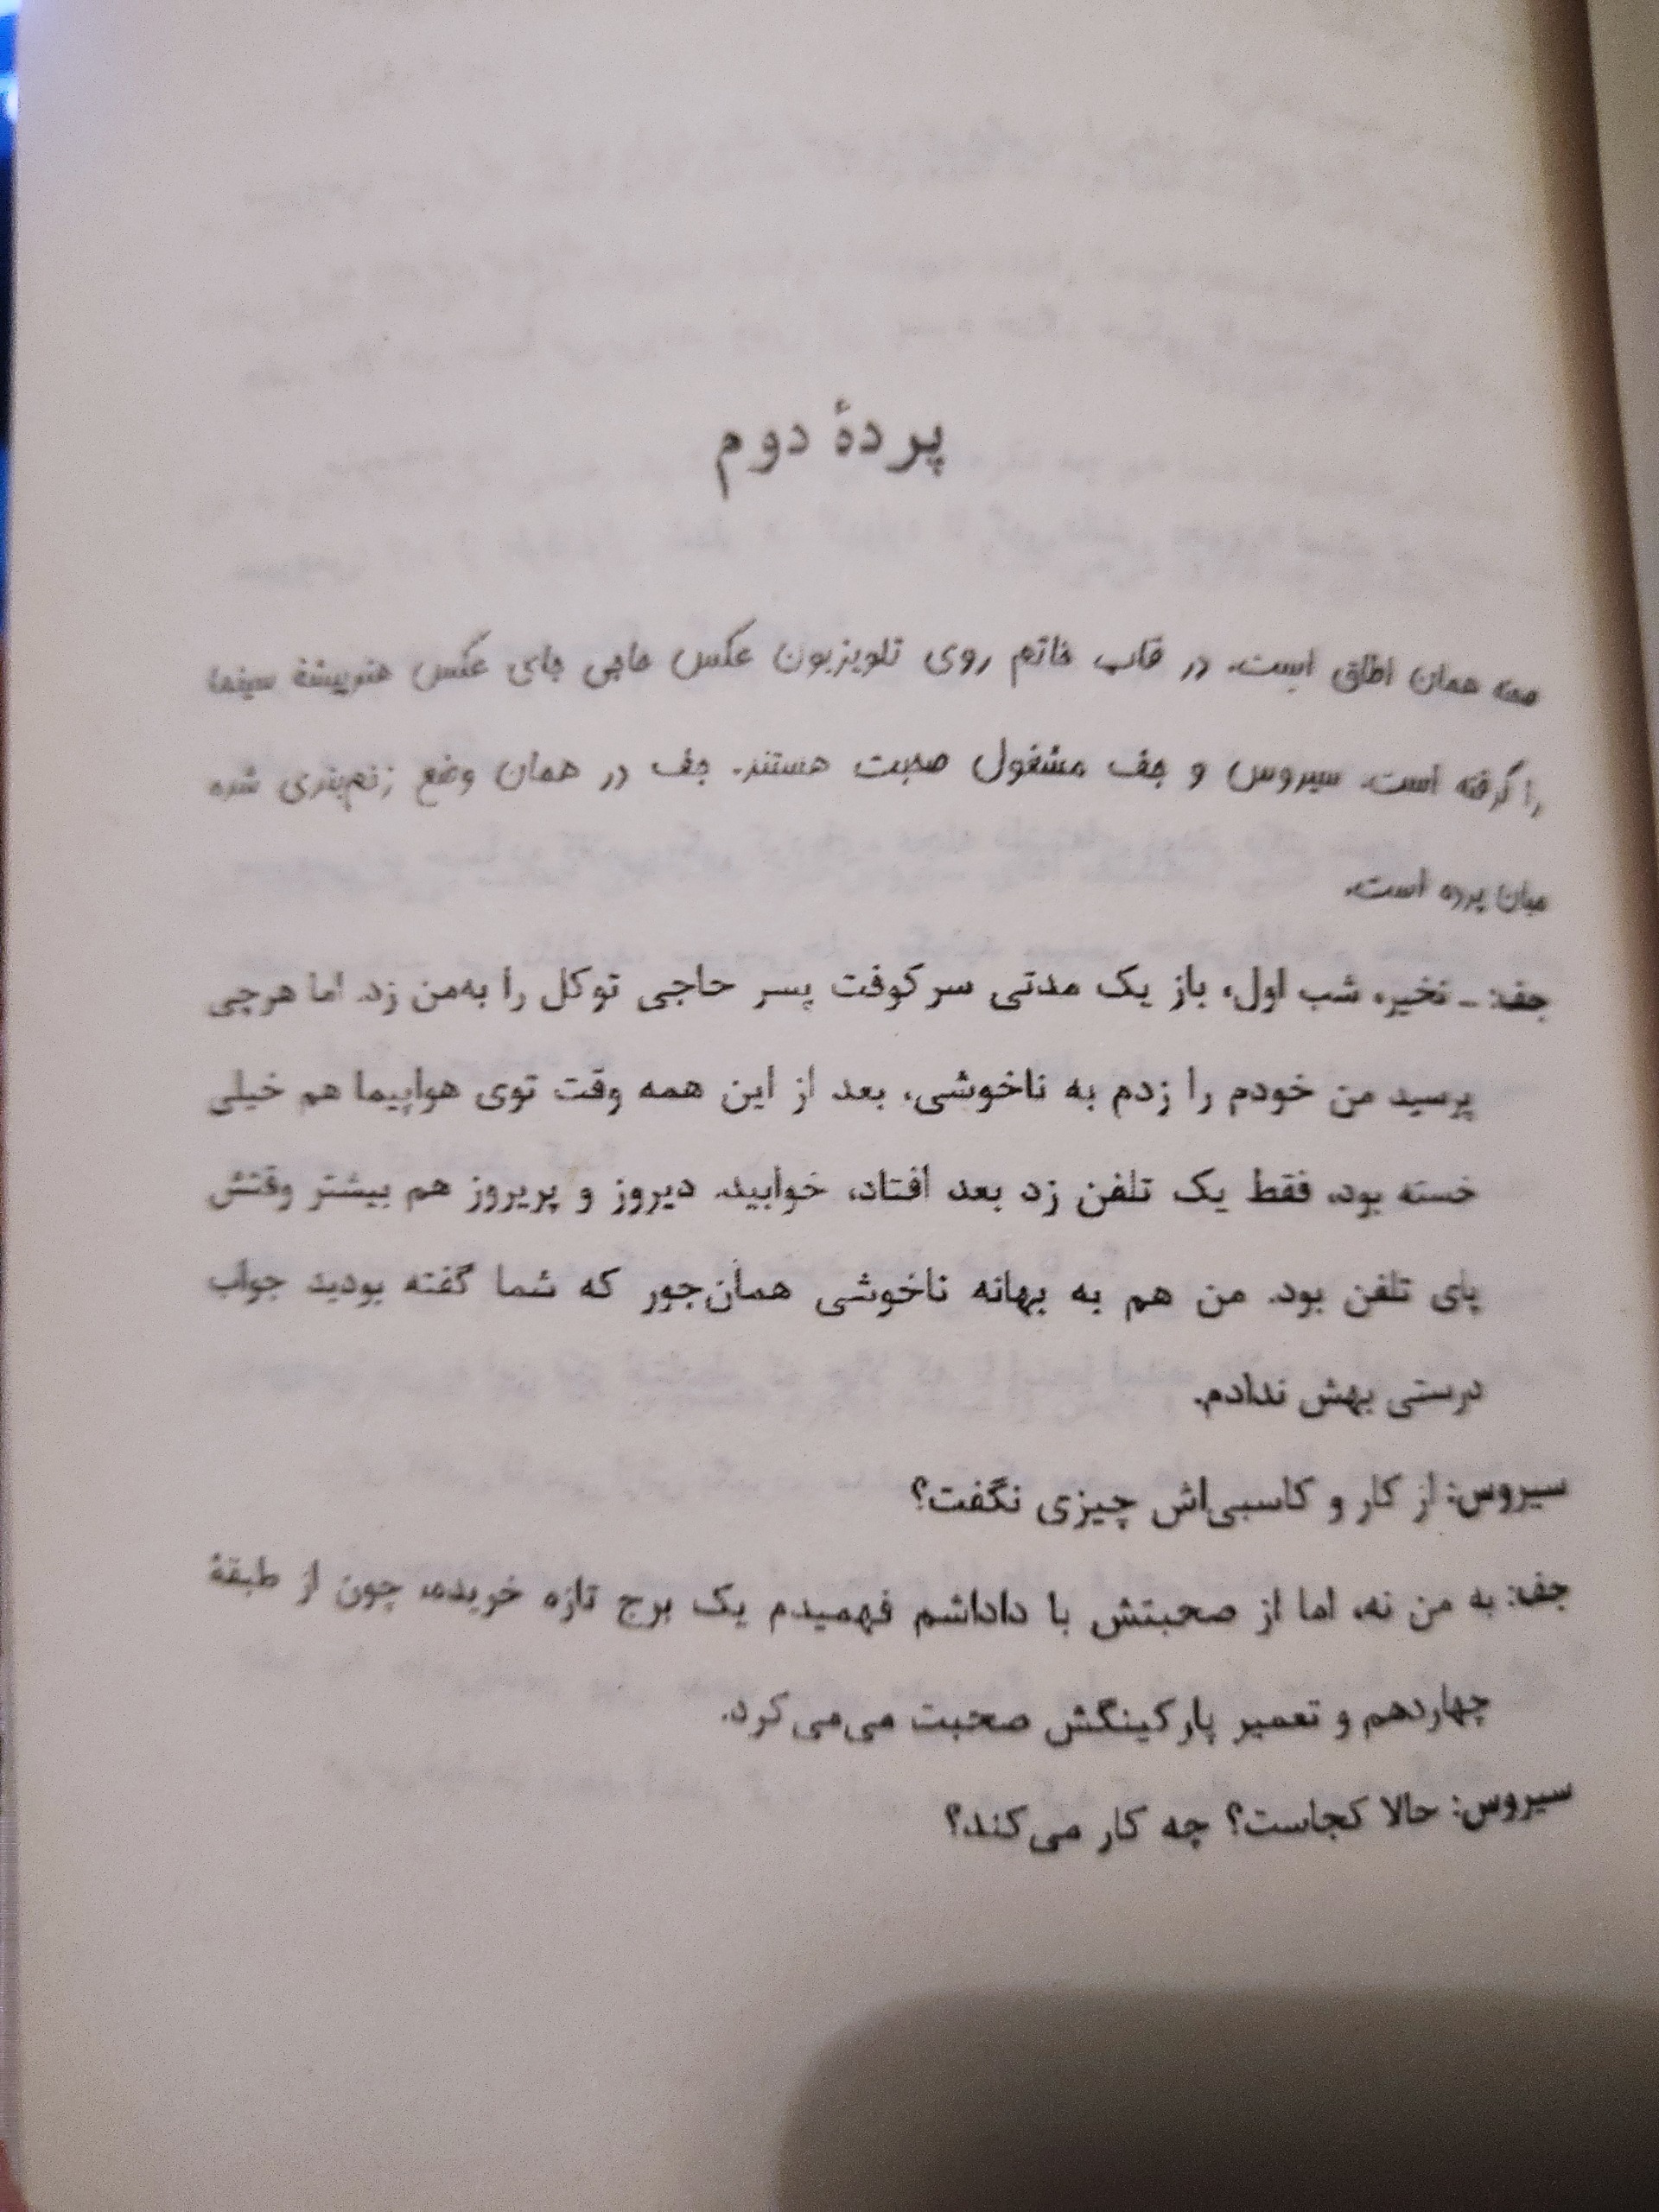 پردهٔ دوم
صحنه همان اطاق است. در قاب خاتم روی تلویزیون عکس حاجی جای عکس هنرپیشهٔ سینما
را گرفته است. سیروس و جف مشغول صحبت هستند. جف در همان وضع زخم‌بندی شده
میان پرده است.
جف: ـ نخیر، شب اول، باز یک مدتی سرکوفت پسر حاجی توکل را به‌من زد. اما هرچی
پرسید من خودم را زدم به ناخوشی، بعد از این همه وقت توی هواپیما هم خیلی
خسته بود، فقط یک تلفن زد بعد افتاد، خوابید. دیروز و پریروز هم بیشتر وقتش
پای تلفن بود. من هم به بهانه ناخوشی همان‌جور که شما گفته بودید جواب
درستی بهش ندادم.
سیروس: از کار و کاسبی‌اش چیزی نگفت؟
جف: به من نه، اما از صحبتش با داداشم فهمیدم یک برج تازه خریده، چون از طبقهٔ
چهاردهم و تعمیر پارکینگش صحبت می‌می‌کرد.
سیروس: حالا کجاست؟ چه کار می‌کند؟